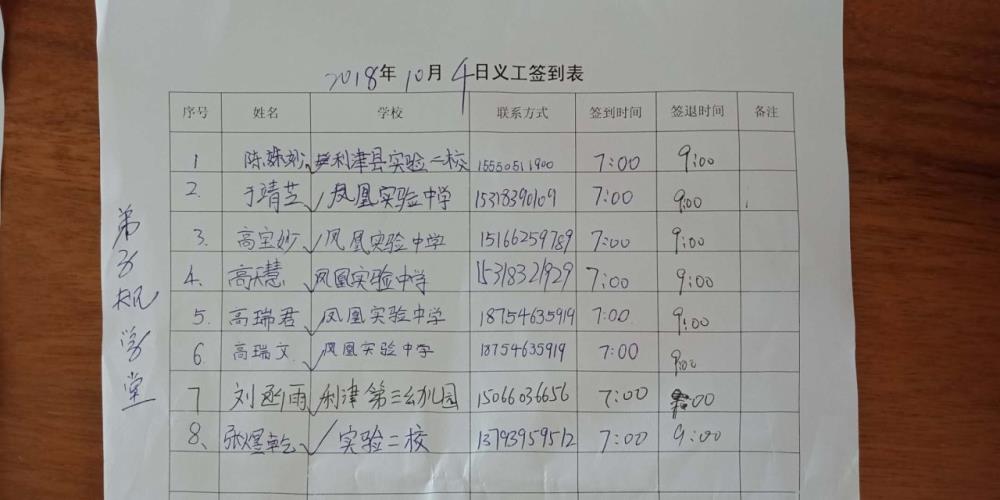 2018年10月4日义工签到表
序号 姓名 学校 联系方式 签到时间 签退时间 备注
1 陈姝妙 利津县实验一校 15550511900 7:00 9:00
2. 于靖芸 凤凰实验中学 15318390109 7:00 9:00
3. 高宝妙 凤凰实验中学 15166259789 7:00 9:00
4. 高天慧 凤凰实验中学 15318321929 7:00 9:00
5. 高瑞君 凤凰实验中学 18754635919 7:00 9:00
6. 高瑞文 凤凰实验中学 18754635919 7:00 9:00
7 刘函雨 利津第三幼儿园 15066036656 7:00 :00
8、张煜乾 实验二校 13793959512 7:00 9:00
弟子规学堂